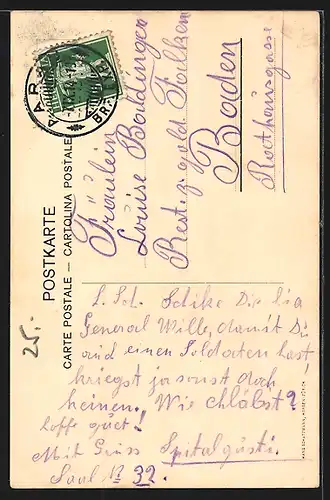 POSTKARTE
CARTE POSTALE — CARTOLINA POSTALE
Fräulein
Louise Baldinger
Rest. z. gold. Falken
Baden
Rathausgasse
L. Sch. Schike Dir hia
General Wille, damit Du
aud einen Soldaten hast,
kriegst ja sonst doch
keinen. Wie chläbst?
hoffe guet!
Mit Gruss Spitalgüsti.
Saal N 32.
25.-